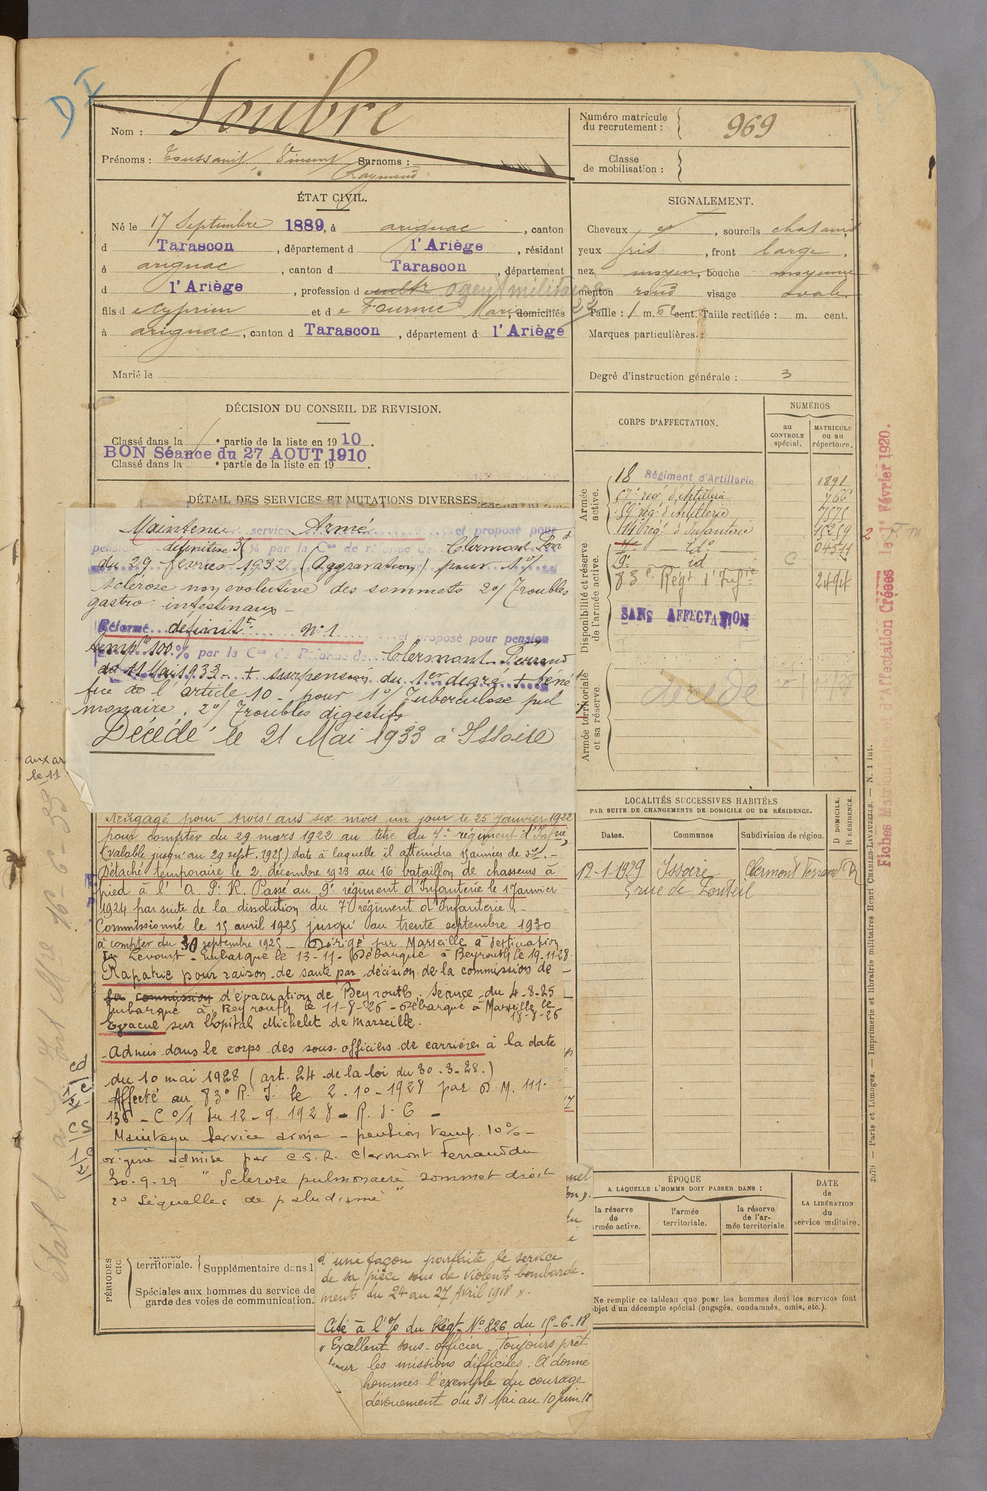 D I
Nom : Soubre
Prénoms : Toussaint, Vincent, Surnoms :
Raymond
Numéro matricule
du recrutement : 969
Classe
de mobilisation :
ÉTAT CIVIL.
Né le 17 Septembre 1889, à arignac, canton
d Tarascon, département d l'Ariège, résidant
à arignac, canton d Tarascon, département
d l'Ariège, profession d agent militaire
fils d e Cyprien et d e Fournié Marie, domiciliés
à arignac, canton d Tarascon, département d l'Ariège
Marié le
SIGNALEMENT.
Cheveux et, sourcils chatains
yeux gris, front large,
nez moyen, bouche moyenne
menton rond visage ovale
Taille : 1 m. cent. Taille rectifiée : m. cent.
Marques particulières :
Degré d'instruction générale : 3
DÉCISION DU CONSEIL DE REVISION.
Classé dans la partie de la liste en 1910.
BON Séance du 27 AOUT 1910
Classé dans la partie de la liste en 19
DÉTAIL DES SERVICES ET MUTATIONS DIVERSES.
Maintenu service Armé et proposé pour
pension définitive % par la Con de réforme de Clermont Fert
du 29 février 1932 (Aggravation) pour 1°/
Sclérose non évolutive des sommets 2°/ Troubles
gastro-intestinaux -
Réformé définitt n°1 proposé pour pension
temp 100% par la Con de Réforme de Clermont Ferrand
du 11 Mai 1933 + suspension du 1er degré + béné
fice de l'article 10 - pour 1°/ Tuberculose pul
monaire, 2°/ Troubles digestifs
Décédé le 21 Mai 1933 à Issoire
Rengagé pour trois ans six mois un jour le 25 janvier 1922
pour compter du 29 mars 1922 au titre du 7e régiment d'Infrie
(valable jusqu'au 29 sept. 1925) date à laquelle il atteindra 15 années de sce. -
Détaché temporaire le 2 décembre 1923 au 16 bataillon de chasseurs à
pied à l'A. F. R. Passé au 9e régiment d'Infanterie le 1 janvier
1924 par suite de la dissolution du 7 régiment d'Infanterie -
Commissionné le 15 avril 1925 jusqu'au trente septembre 1930
à compter du 30 septembre 1925 - Dirigé sur Marseille à destination
du Levant - Embarqué le 13-11- Débarqué à Beyrouth le 19-11-28
Rapatrié pour raison de santé par décision de la commission de
d'évacuation de Beyrouth. Séance du 4-8-25
Embarqué à Beyrouth le 11-8-26 - Débarqué à Marseille le
18-8-26
Evacué sur l'hopital Michelet de Marseille.
Admis dans le corps des sous-officiers de carrière à la date
du 10 mai 1928 (art. 24 de la loi du 30-3-28.)
Affecté au 83e R. I. le 2-10-1928 par D. M. 111.
138 - C 0/1 du 12-9-1928 - R. d. C -
Maintenu Service armé - pension temp. 10% -
origine admise par C.S.R. Clermont Ferrand du
30-9-29 "Sclérose pulmonaire sommet droit
2° Séquelles de paludisme"
CORPS D'AFFECTATION.
NUMÉROS
au
CONTROLE
spécial.
MATRICULE
ou au
répertoire.
Armée
active.
18 Régiment d'Artillerie 1891
57e rég d'Artillerie 766
rég d'Artillerie
rég d'Infanterie 15259
id° 04511
9e id C
83e Régt d'Infie
Disponibilité et réserve
de l'armée active.
SANS AFFECTATION
Armée territoriale
et sa réserve.
décédé
LOCALITÉS SUCCESSIVES HABITÉES
PAR SUITE DE CHANGEMENTS DE DOMICILE OU DE RÉSIDENCE.
Dates. Communes Subdivision de région. D DOMICILE. R RÉSIDENCE.
12-1-1929 Issoire Clermont Ferrand R
5 rue de Ponteil
ÉPOQUE
A LAQUELLE L'HOMME DOIT PASSER DANS :
la réserve
de
l'armée active.
l'armée
territoriale.
la réserve
de l'ar-
mée territoriale.
DATE
de
LA LIBÉRATION
du
service militaire.
Ne remplir ce tableau que pour les hommes dont les services font
objet d'un décompte spécial (engagés, condamnés, omis, etc.).
PÉRIODES
territoriale. Supplémentaire dans l
Spéciales aux hommes du service de
garde des voies de communication.
d'une façon parfaite le service
de sa pièce sous de violents bombarde-
ments du 24 au 27 Avril 1918 ».
Cité à l'O/ du Régt N° 826 du 15-6-18
« Excellent sous-officier toujours prêt
pour les missions difficiles. A donné
hommes l'exemple du courage
dévouement du 31 Mai au 10 Juin 18
Fiches Matricule et d'Affectation Créées le 1er Février 1920.
2079 — Paris et Limoges. — Imprimerie et librairie militaires Henri CHARLES-LAVAUZELLE. — N. 1 int.